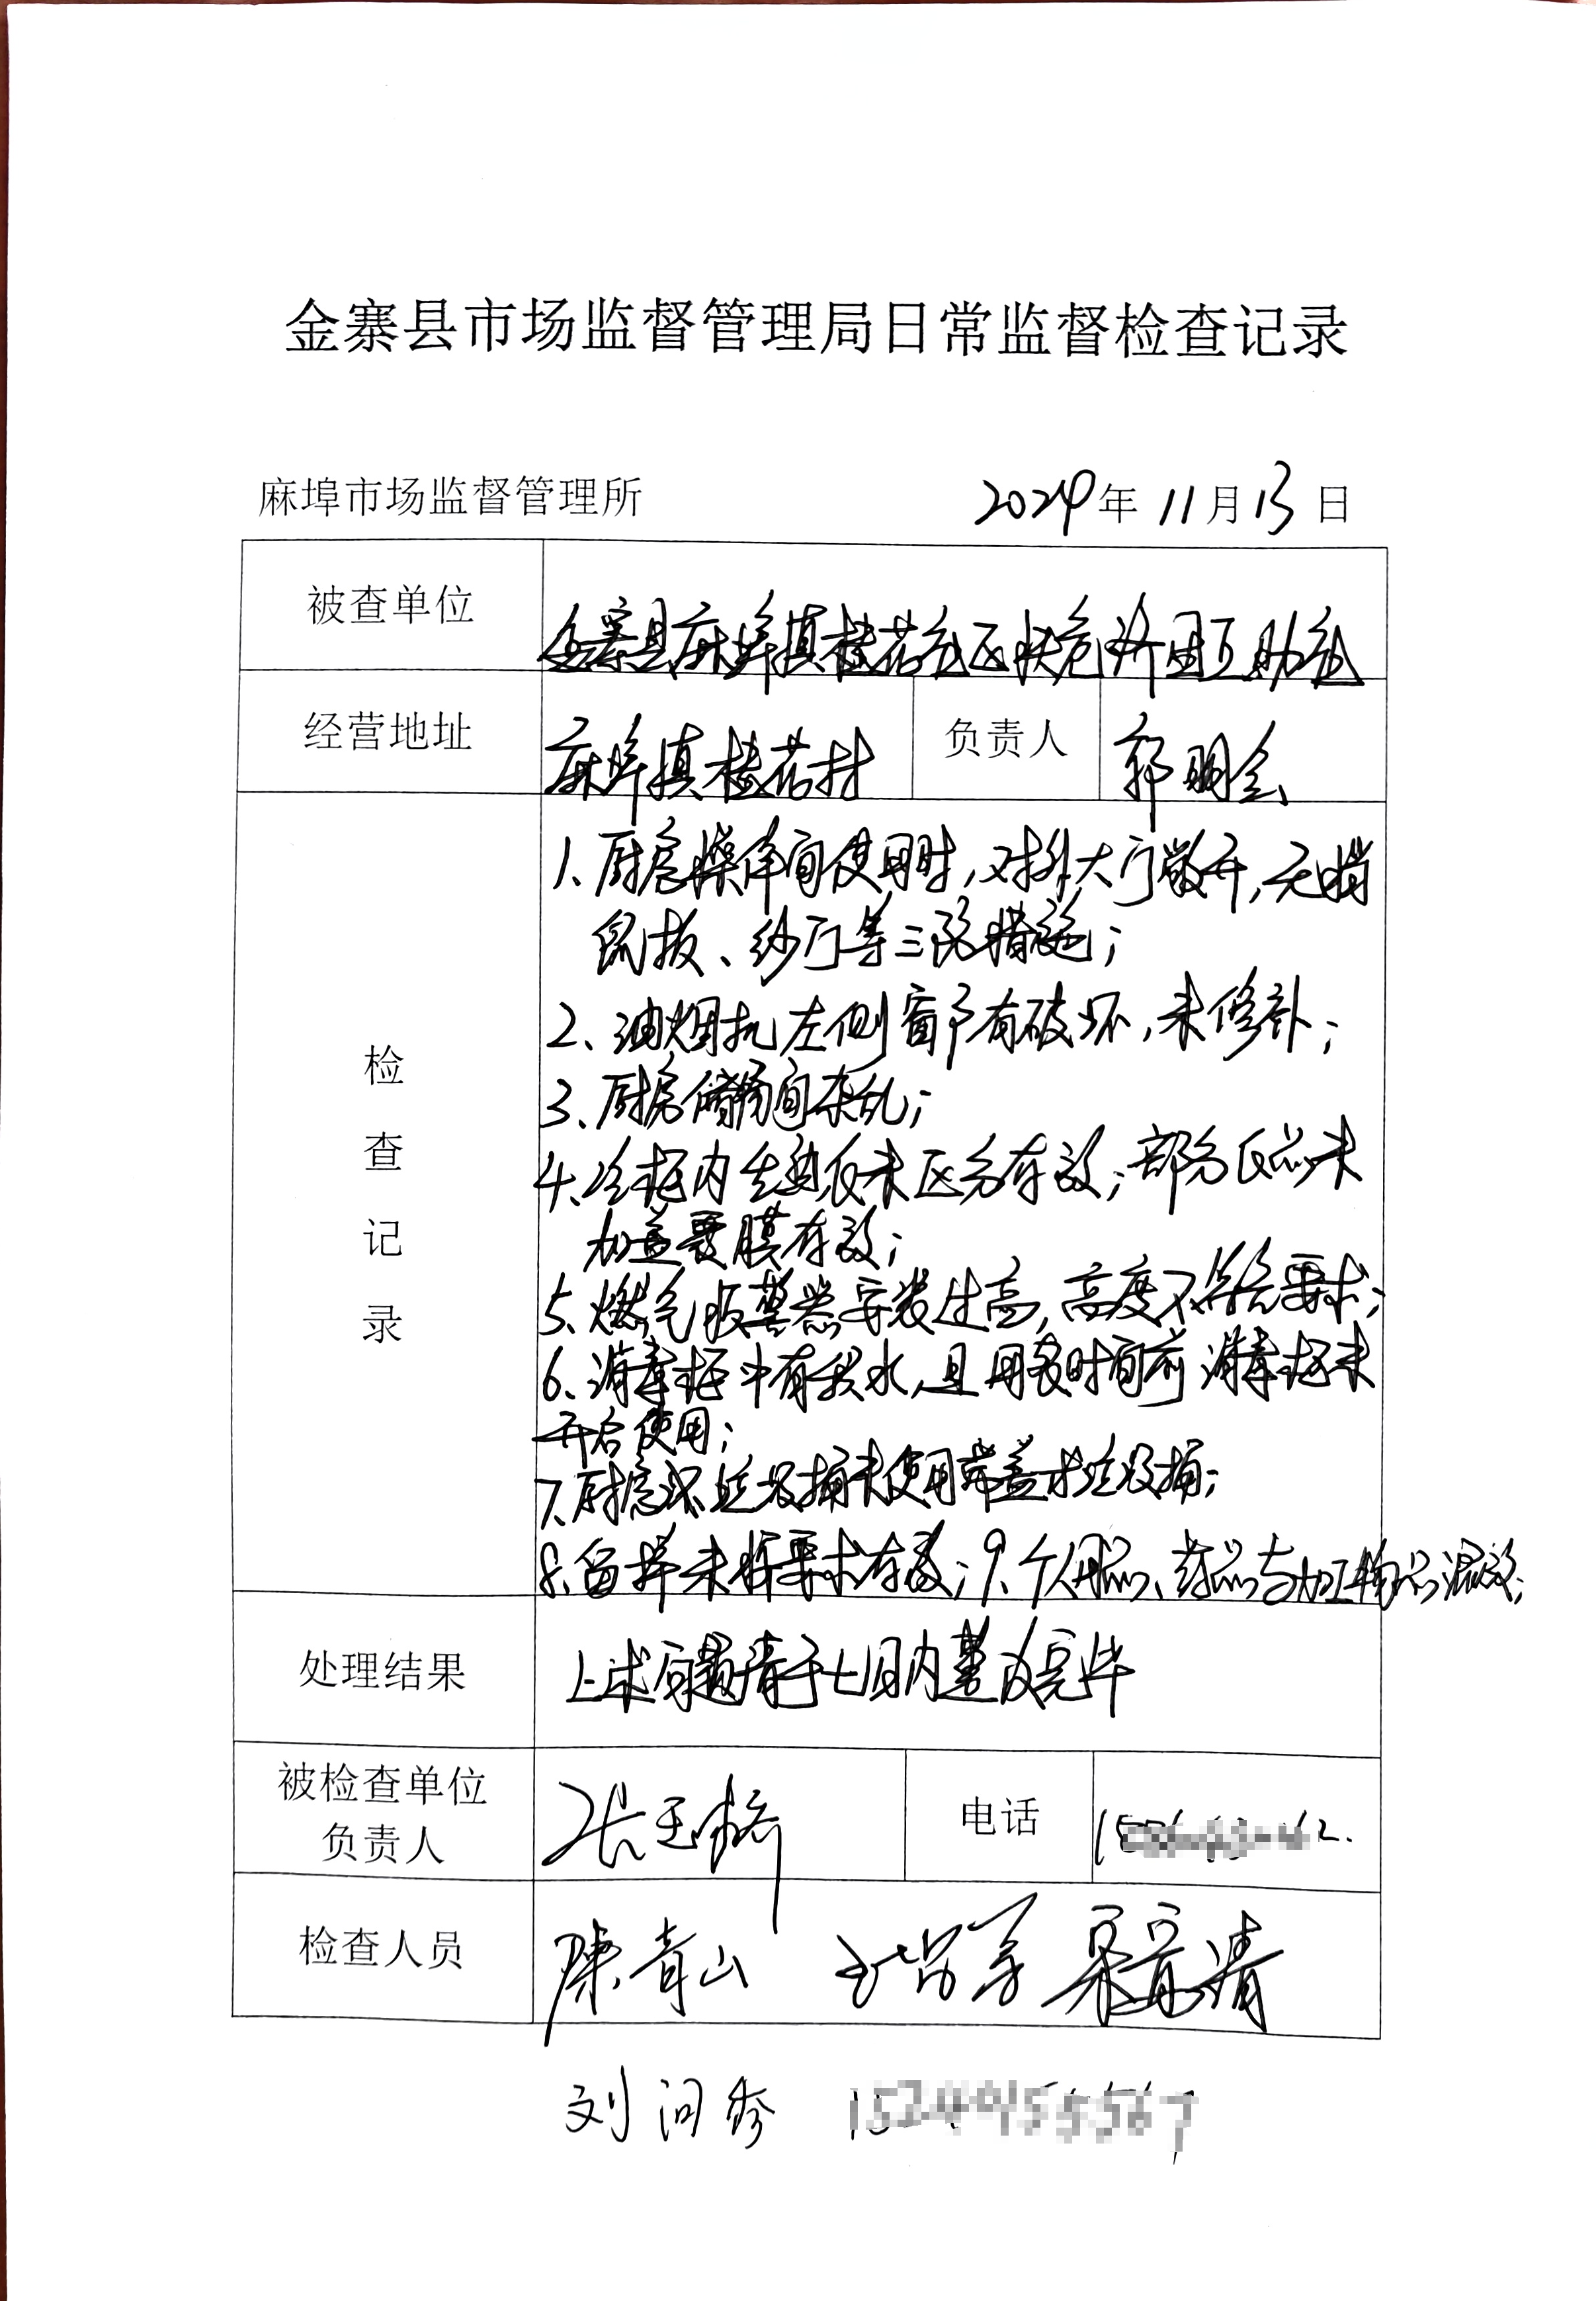 金寨县市场监督管理局日常监督检查记录
麻埠市场监督管理所 2024年11月13日
被查单位 金寨县麻埠镇桂花社区扶危济困互助社
经营地址 麻埠镇桂花村 负责人 郭明会
检查记录
1、厨房操作间使用时,对外大门敞开,无挡
鼠板、纱门等三防措施;
2、油烟机左侧窗户有破坏,未修补;
3、厨房储物间杂乱;
4、冷柜内生熟食未区分存放;部分食品未
加盖覆膜存放;
5、燃气报警器安装过高,高度不符合要求;
6、消毒柜中有积水,且用餐时间前消毒柜未
开启使用;
7、厨房垃圾桶未使用带盖垃圾桶;
8、留样未按要求存放;9、个人用品、药品与加工物品混放;
处理结果 上述问题请于七日内整改完毕
被检查单位
负责人 张玉 电话
检查人员 陈青山
刘